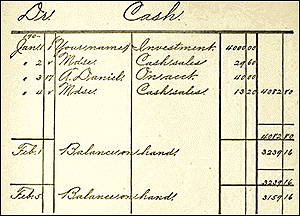 Dr. Cash.
190-
Jan. 1 ✓ Your name Investment 4000 00
" 2 ✓ Mdse. Cash sales 29 60
" 3 17 A. Daniels On acct. 40 00
" 4 ✓ Mdse. Cash sales 13 20 4082 80
4082 80
Feb. 1 Balance on hand 3239 16
3239 16
Feb. 5 Balance on hand 3159 16